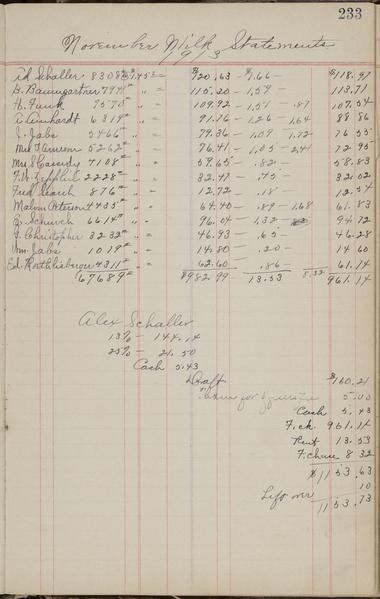 233
November Milk Statements
1913
Ad Schaller 8308# @1.45= $120.63 - 1.66 - $118.97
G. Baumgartner 7941# " = 115.20 - 1.59 - 113.71
H. Funk 7570# " = 109.92 - 1.51 - .87 107.54
6319# " = 91.76 - 1.26 - 1.64 88.86
J. Jabs 5466# " = 79.36 - 1.09 - 1.72 76.55
Mrs 5262# " = 76.41 - 1.05 - 2.41 72.95
Mrs S Cassidy 4108# " = 59.65 - .82 - 58.83
2228# " = 32.47 - .45 - 32.02
Fred 876# " = 12.72 - .18 - 12.54
4435# " = 64.40 - .89 - 1.68 61.83
E. Schurch 6614# " = 96.04 - 1.32 94.72
G. Christopher 3232# " = 46.93 - .65 - 46.28
Wm. Jabs 1019# " = 14.80 - .20 - 14.60
Ed. Rothlisberger 4311# " = 62.60 - .86 - 61.14
67689# $982.99 - 13.53 8.32 961.14
Alex Schaller
13% - 144.14
25% - 21.50
Cash 5.43
Draft $160.21
for 5.00
Cash 5.43
F. ch. 961.14
Rent 13.53
F. cheese 8.32
$1153.63
Left over 10
1153.73